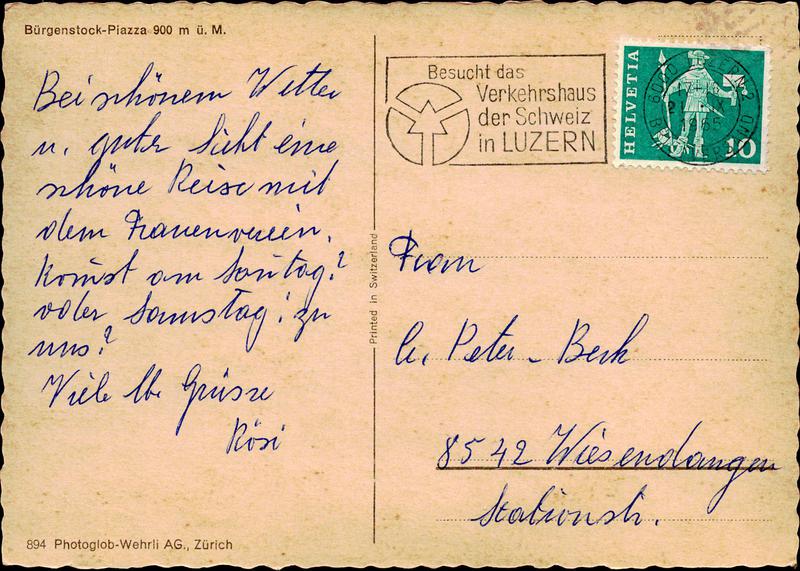 Bürgenstock-Piazza 900 m ü. M.
Bei schönem Wetter
u. guter Sicht eine
schöne Reise mit
dem Frauenverein.
Kommst am Sonntag?
oder Samstag! zu
uns?
Viele lb. Grüsse
Rösi
894 Photoglob-Wehrli AG., Zürich
Printed in Switzerland
Besucht das
Verkehrshaus
der Schweiz
in LUZERN
HELVETIA
10
6000 LUZERN 2
1965
Frau
Peter - Berk
8542 Wiesendangen
Stationstr.